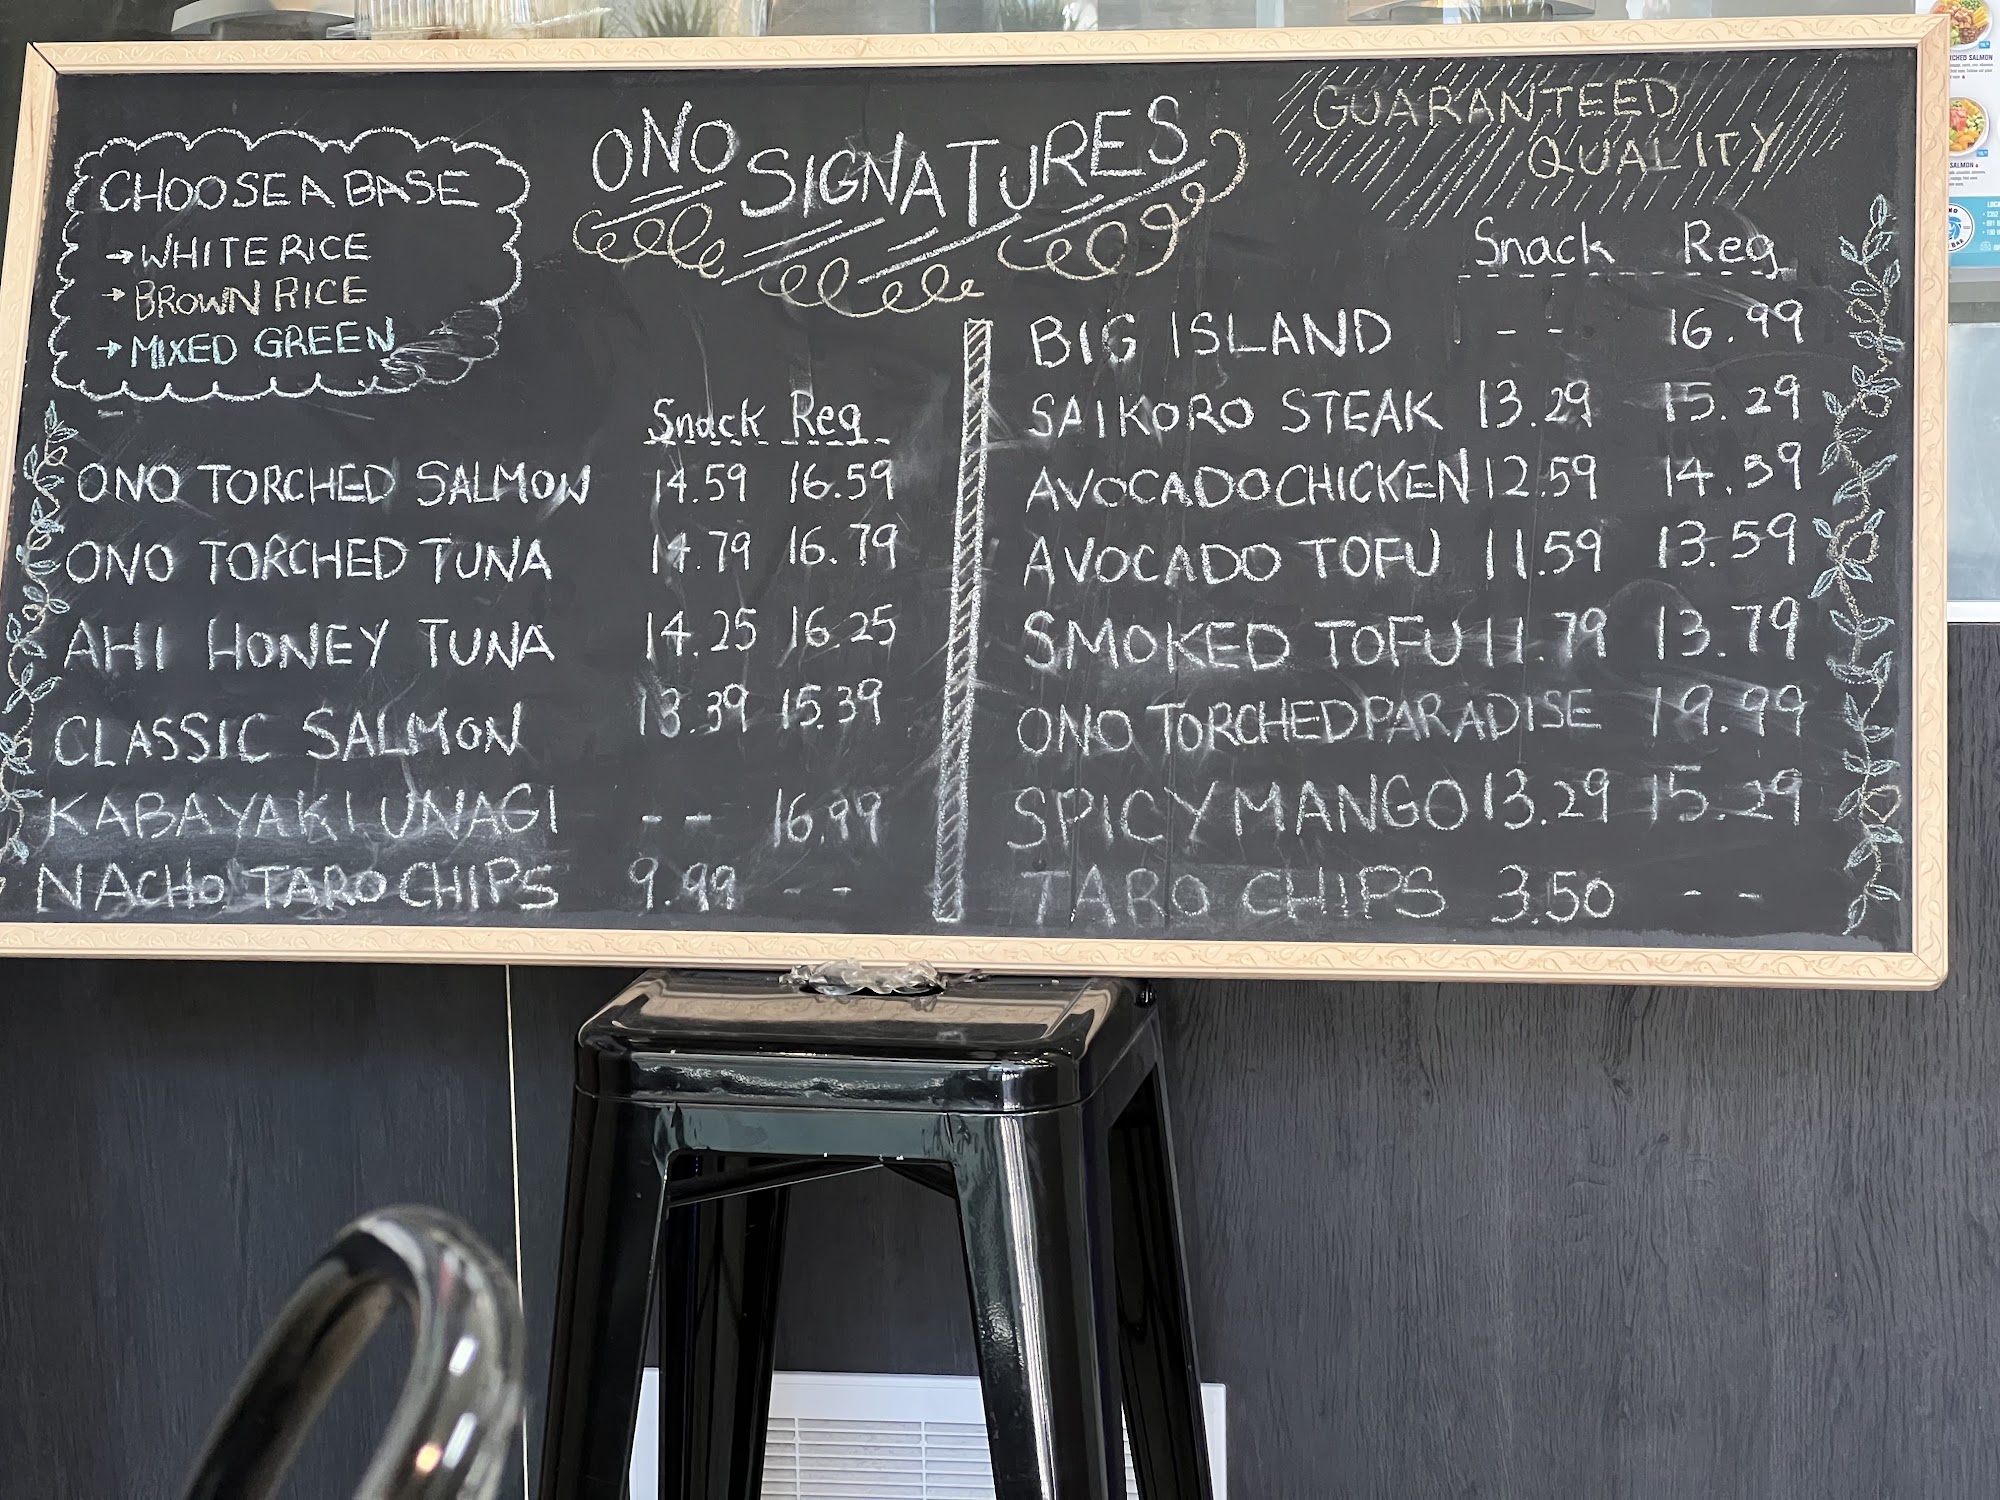 CHOOSE A BASE
→ WHITE RICE
→ BROWN RICE
→ MIXED GREEN
ONO SIGNATURES
GUARANTEED
QUALITY
Snack Reg
ONO TORCHED SALMON 14.59 16.59
ONO TORCHED TUNA 14.79 16.79
AHI HONEY TUNA 14.25 16.25
CLASSIC SALMON 13.39 15.39
KABAYAKI UNAGI -- 16.99
NACHO TARO CHIPS 9.99 --
Snack Reg
BIG ISLAND -- 16.99
SAIKORO STEAK 13.29 15.29
AVOCADO CHICKEN 12.59 14.59
AVOCADO TOFU 11.59 13.59
SMOKED TOFU 11.79 13.79
ONO TORCHED PARADISE 19.99
SPICY MANGO 13.29 15.29
TARO CHIPS 3.50 --
SALMON
SALMON